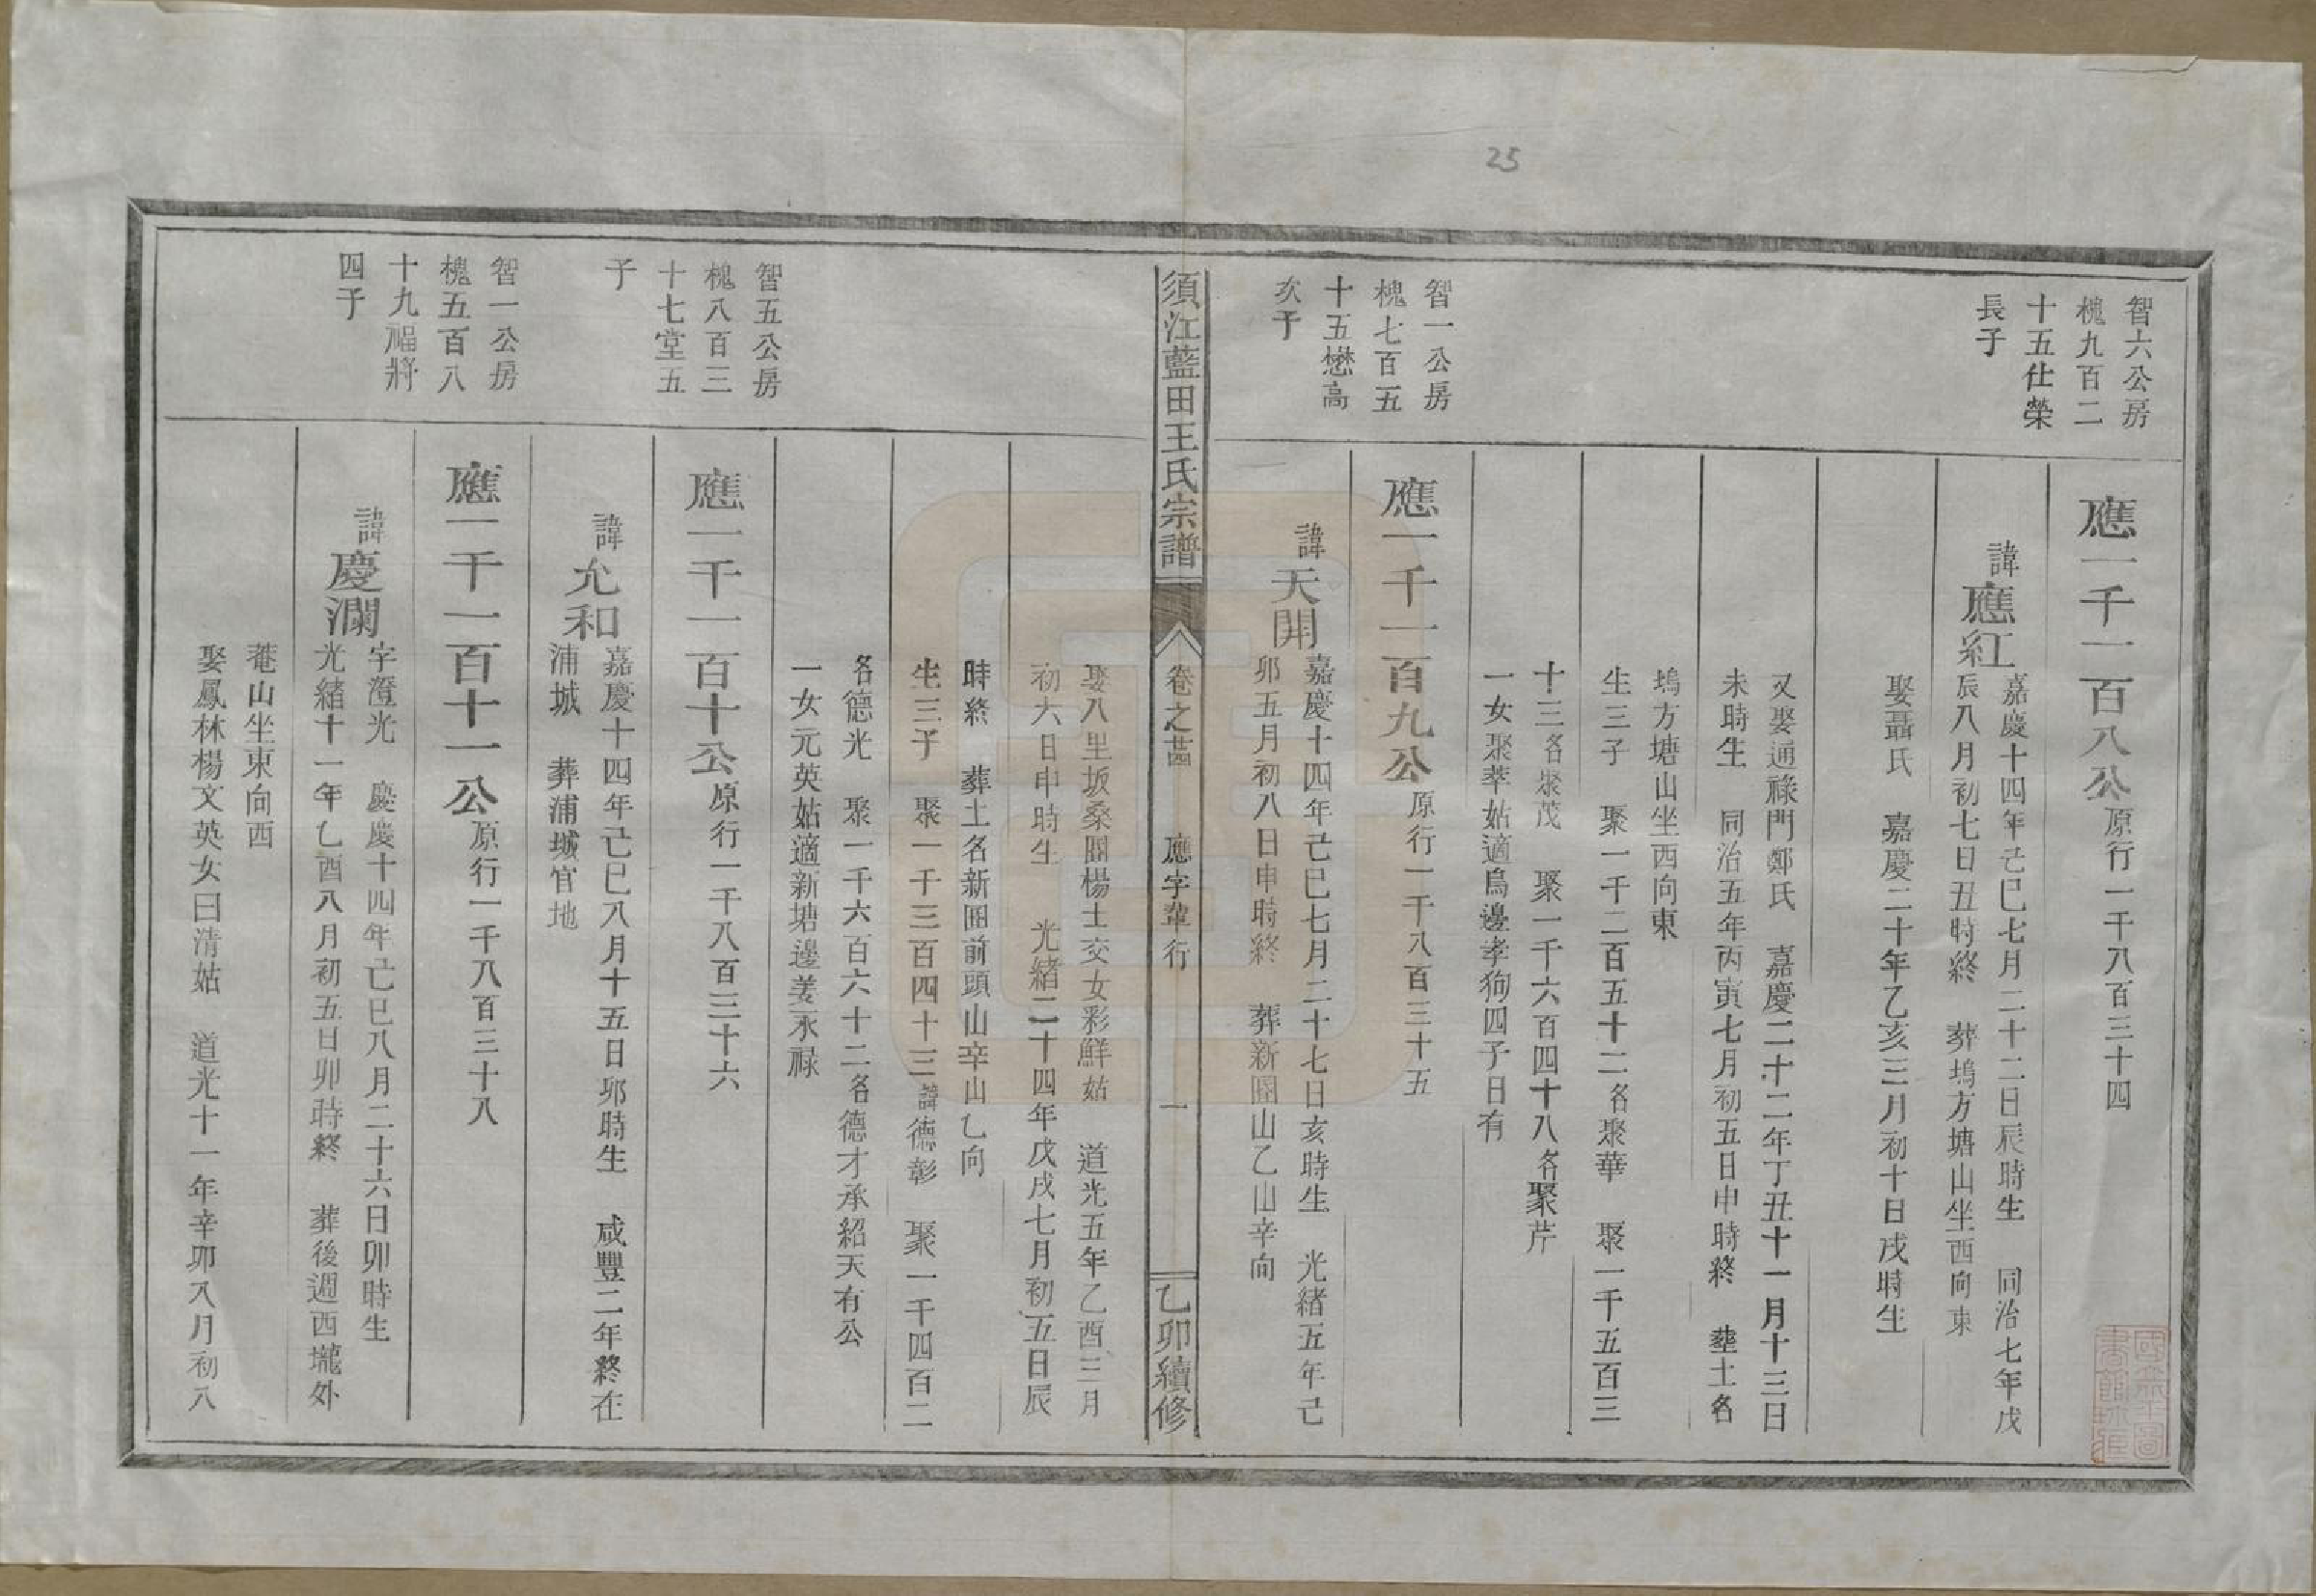 25
智六公房
槐九百二
十五仕榮
長子
應一千一百八公原行一千八百三十四
諱應紅嘉慶十四年己巳七月二十二日辰時生 同治七年戊
辰八月初七日丑時終 葬塢方塘山坐西向東
娶聶氏 嘉慶二十年乙亥三月初十日戌時生
又娶通祿門鄭氏 嘉慶二十二年丁丑十一月十三日
未時生 同治五年丙寅七月初五日申時終 塟土名
塢方塘山坐西向東
生三子 聚一千二百五十二名聚華 聚一千五百三
十三名聚茂 聚一千六百四十八名聚芹
一女聚萃姑適烏邊李狗四子日有
智一公房
槐七百五
十五懋高
次子
應一千一百九公原行一千八百三十五
諱天開嘉慶十四年己巳七月二十七日亥時生 光緒五年己
卯五月初八日申時終 葬新圍山乙山辛向
須江藍田王氏宗譜
卷之
應字輩行
一
乙卯續修
娶八里坂桑圍楊士交女彩鮮姑 道光五年乙酉三月
初六日申時生 光緒二十四年戊戌七月初五日辰
時終 葬土名新圍前頭山辛山乙向
生三子 聚一千三百四十三諱德彰 聚一千四百二
名德光 聚一千六百六十二名德才承紹天有公
一女元英姑適新塘邊姜永祿
智五公房
槐八百三
十七堂五
子
應一千一百十公原行一千八百三十六
諱允和嘉慶十四年己巳八月十五日卯時生 咸豐二年終在
浦城 葬浦城官地
智一公房
槐五百八
十九福將
四子
應一千一百十一公原行一千八百三十八
諱慶瀾字澄光 慶慶十四年己巳八月二十六日卯時生
光緒十一年乙酉八月初五日卯時終 葬後週西壠外
菴山坐東向西
娶鳳林楊文英女曰清姑 道光十一年辛卯八月初八